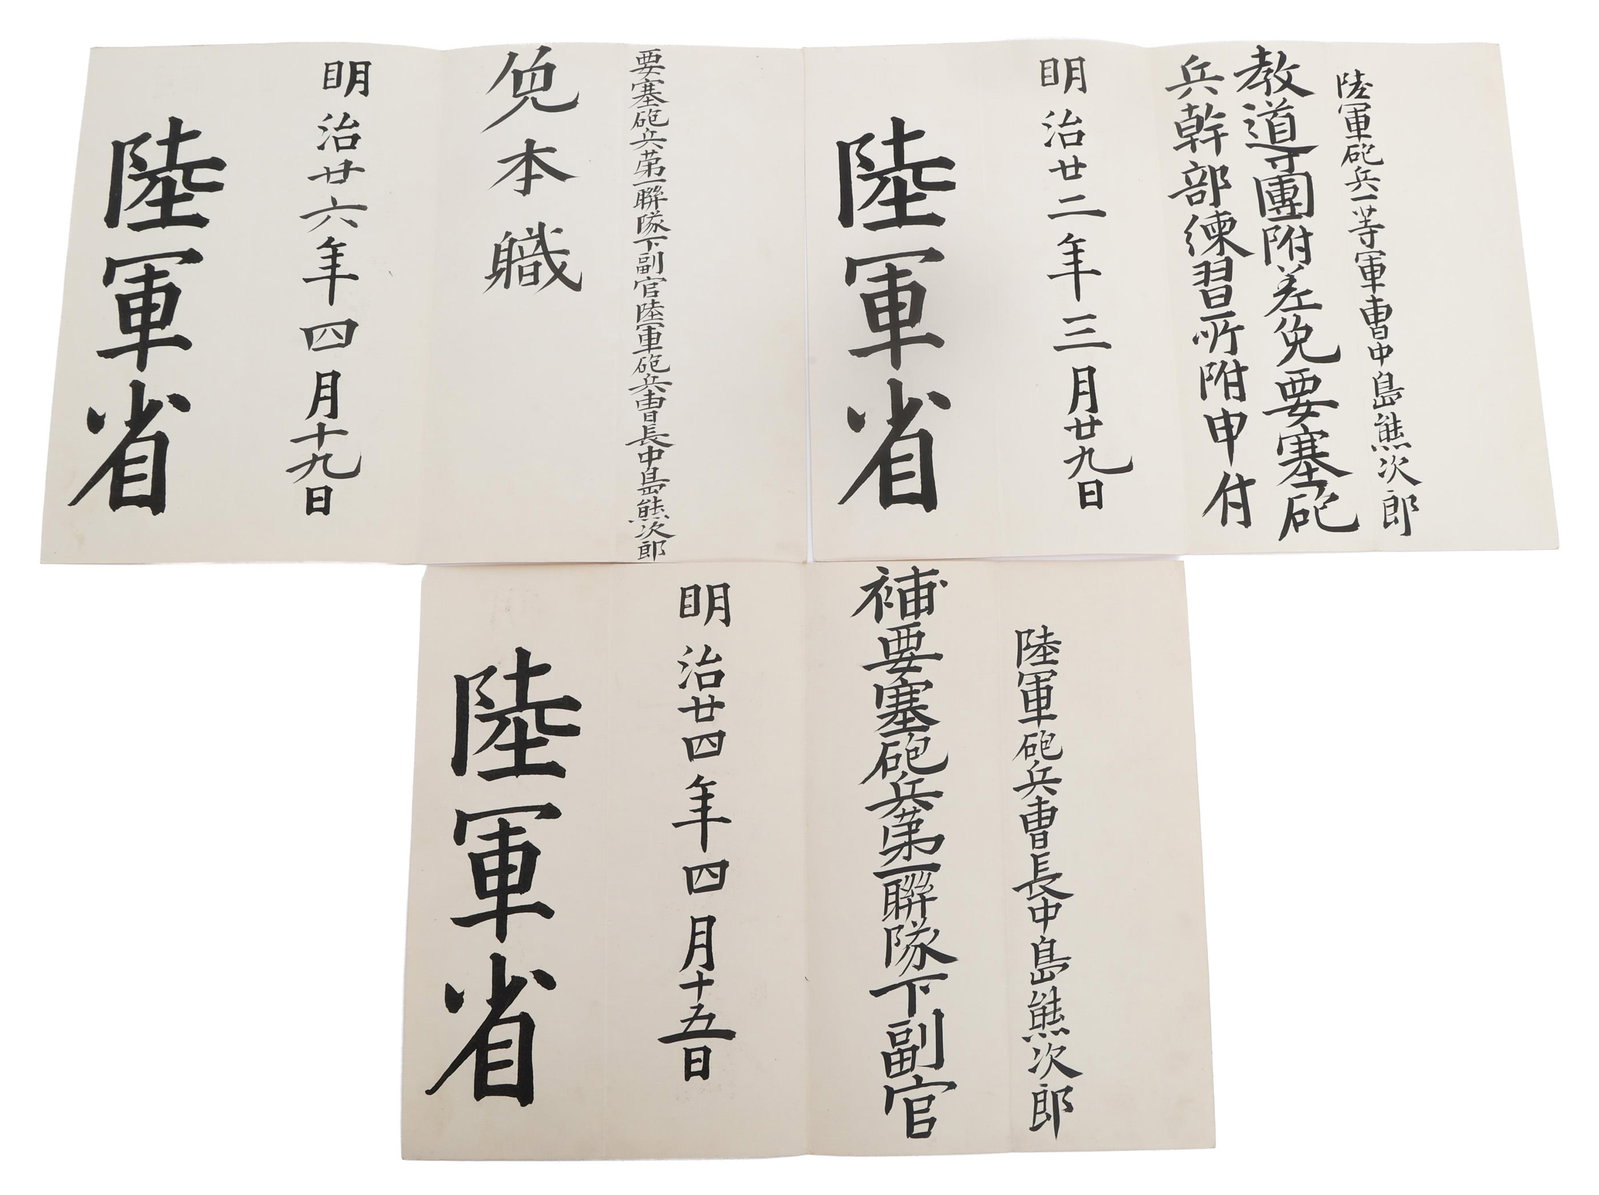 陸軍砲兵一等軍曹中島熊次郎
教導團附差免要塞砲
兵幹部練習所附申付
明治廿二年三月廿九日
陸軍省
要塞砲兵第一聯隊下副官陸軍砲兵曹長中島熊次郎
免本職
明治廿六年四月十九日
陸軍省
陸軍砲兵曹長中島熊次郎
補要塞砲兵第一聯隊下副官
明治廿四年四月十五日
陸軍省